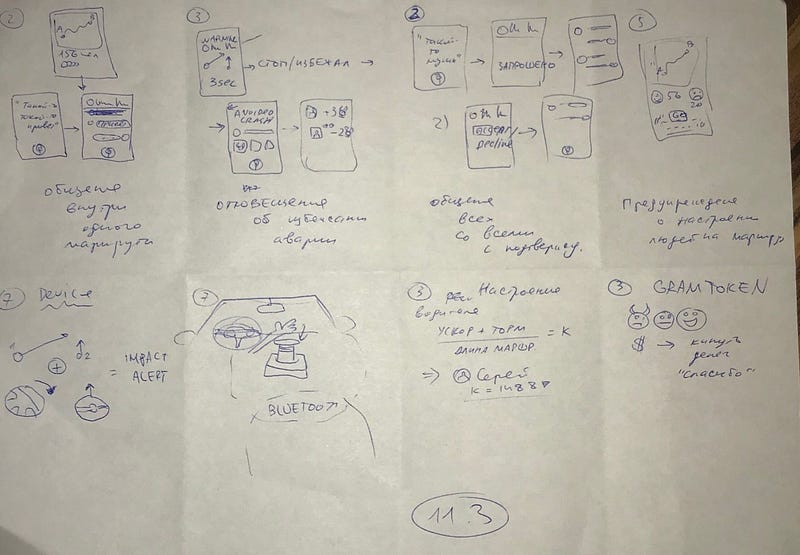 2
A
B
156 чел
"Такой-то
такой-то
привет"
общение
внутри
одного
маршрута
3
WARNING
3 sec
СТОП/ИЗБЕЖАЛ
AVOIDED
CRASH
A +3
-2
оповещения
об избежании
аварии
2
"Такой-
то
ЗАПРОШЕНО
2)
Accept/
Decline
общение
всех
со всеми
с подтвержд.
5
A
B
56
20
Предупреждение
о настроении
людей на маршр
7 Device
2
= IMPACT
ALERT
7
BLUETOOTH
3 Настроение
водителя
УСКОР + ТОРМ
ДЛИНА МАРШР.
= K
⇒ A Сергей
3 GRAMTOKEN
$ → кинуть
денег
"спасибо"
11.3